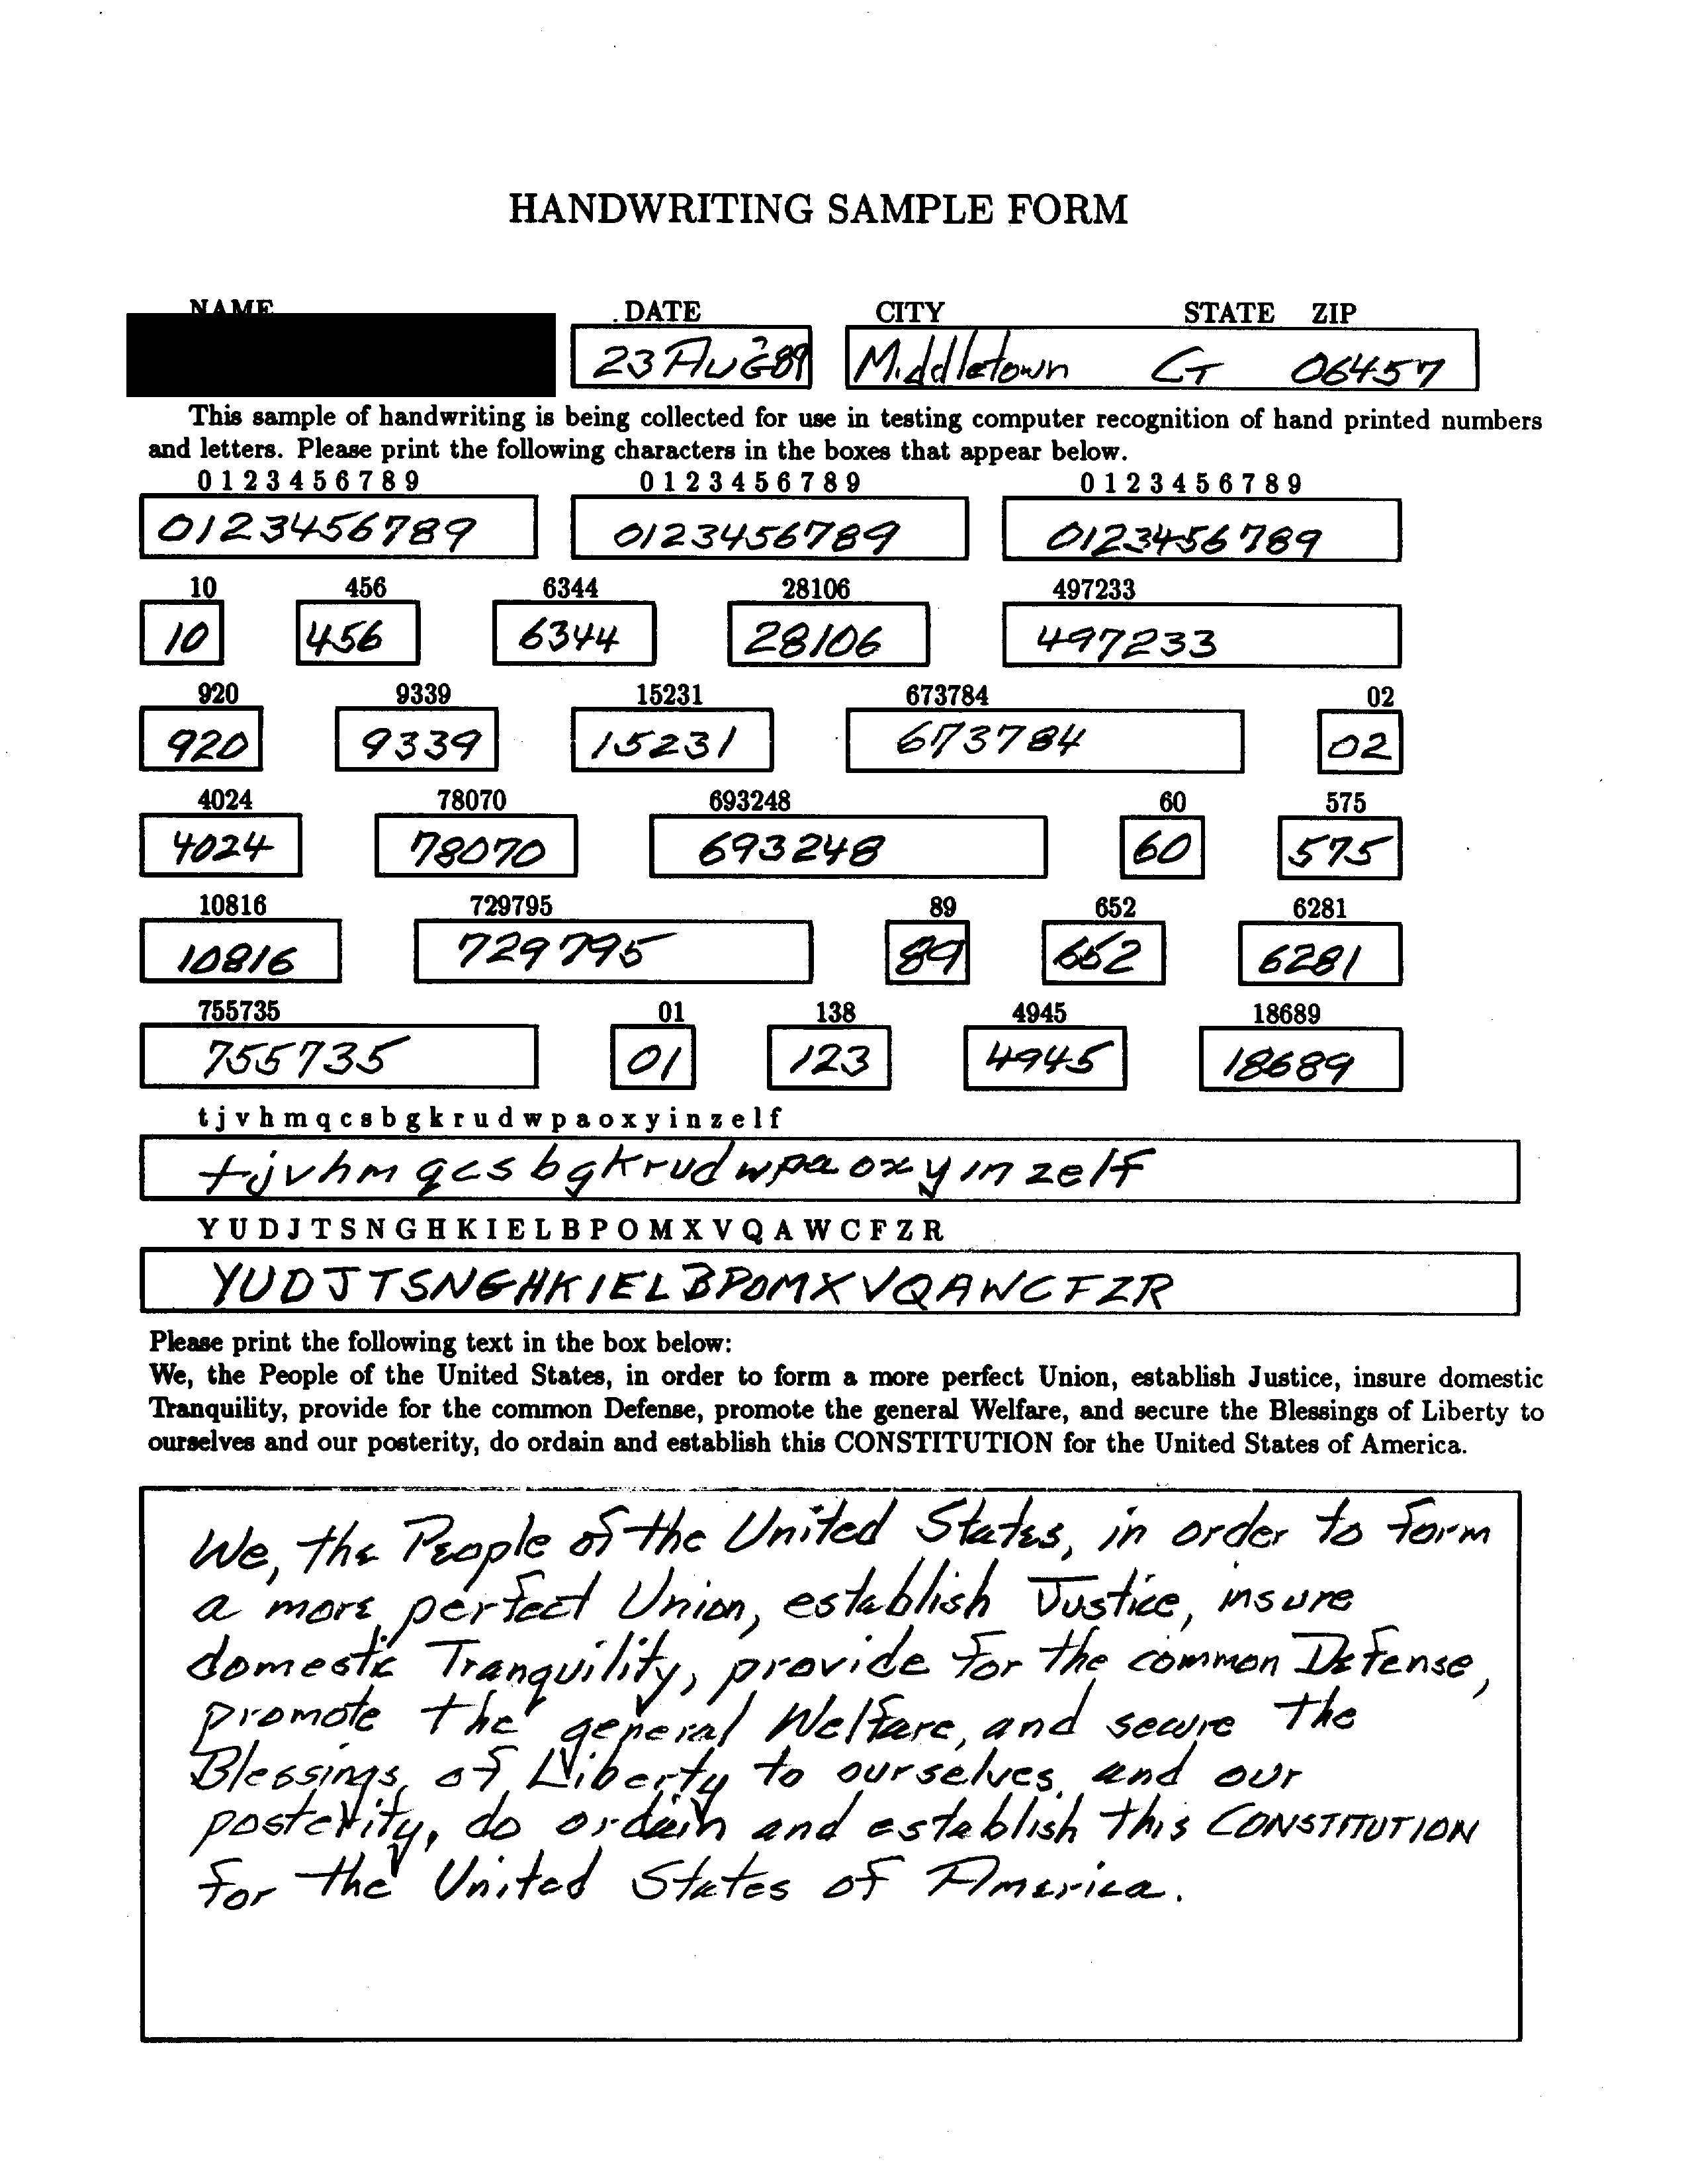 HANDWRITING SAMPLE FORM
NAME DATE CITY STATE ZIP
23 AUG 89 Middletown CT 06457
This sample of handwriting is being collected for use in testing computer recognition of hand printed numbers
and letters. Please print the following characters in the boxes that appear below.
0 1 2 3 4 5 6 7 8 9 0 1 2 3 4 5 6 7 8 9 0 1 2 3 4 5 6 7 8 9
0123456789 0123456789 0123456789
10 456 6344 28106 497233
10 456 6344 28106 497233
920 9339 15231 673784 02
920 9339 15231 673784 02
4024 78070 693248 60 575
4024 78070 693248 60 575
10816 729795 89 652 6281
10816 729795 89 652 6281
755735 01 138 4945 18689
755735 01 123 4945 18689
t j v h m q c s b g k r u d w p a o x y i n z e l f
tjvhmqcsbgkrudwpaoxyinzelf
Y U D J T S N G H K I E L B P O M X V Q A W C F Z R
YUDJTSNGHKIELBPOMXVQAWCFZR
Please print the following text in the box below:
We, the People of the United States, in order to form a more perfect Union, establish Justice, insure domestic
Tranquility, provide for the common Defense, promote the general Welfare, and secure the Blessings of Liberty to
ourselves and our posterity, do ordain and establish this CONSTITUTION for the United States of America.
We, the People of the United States, in order to form
a more perfect Union, establish Justice, insure
domestic Tranquility, provide for the common Defense,
promote the general Welfare, and secure the
Blessings of Liberty to ourselves and our
posterity, do ordain and establish this CONSTITUTION
for the United States of America.